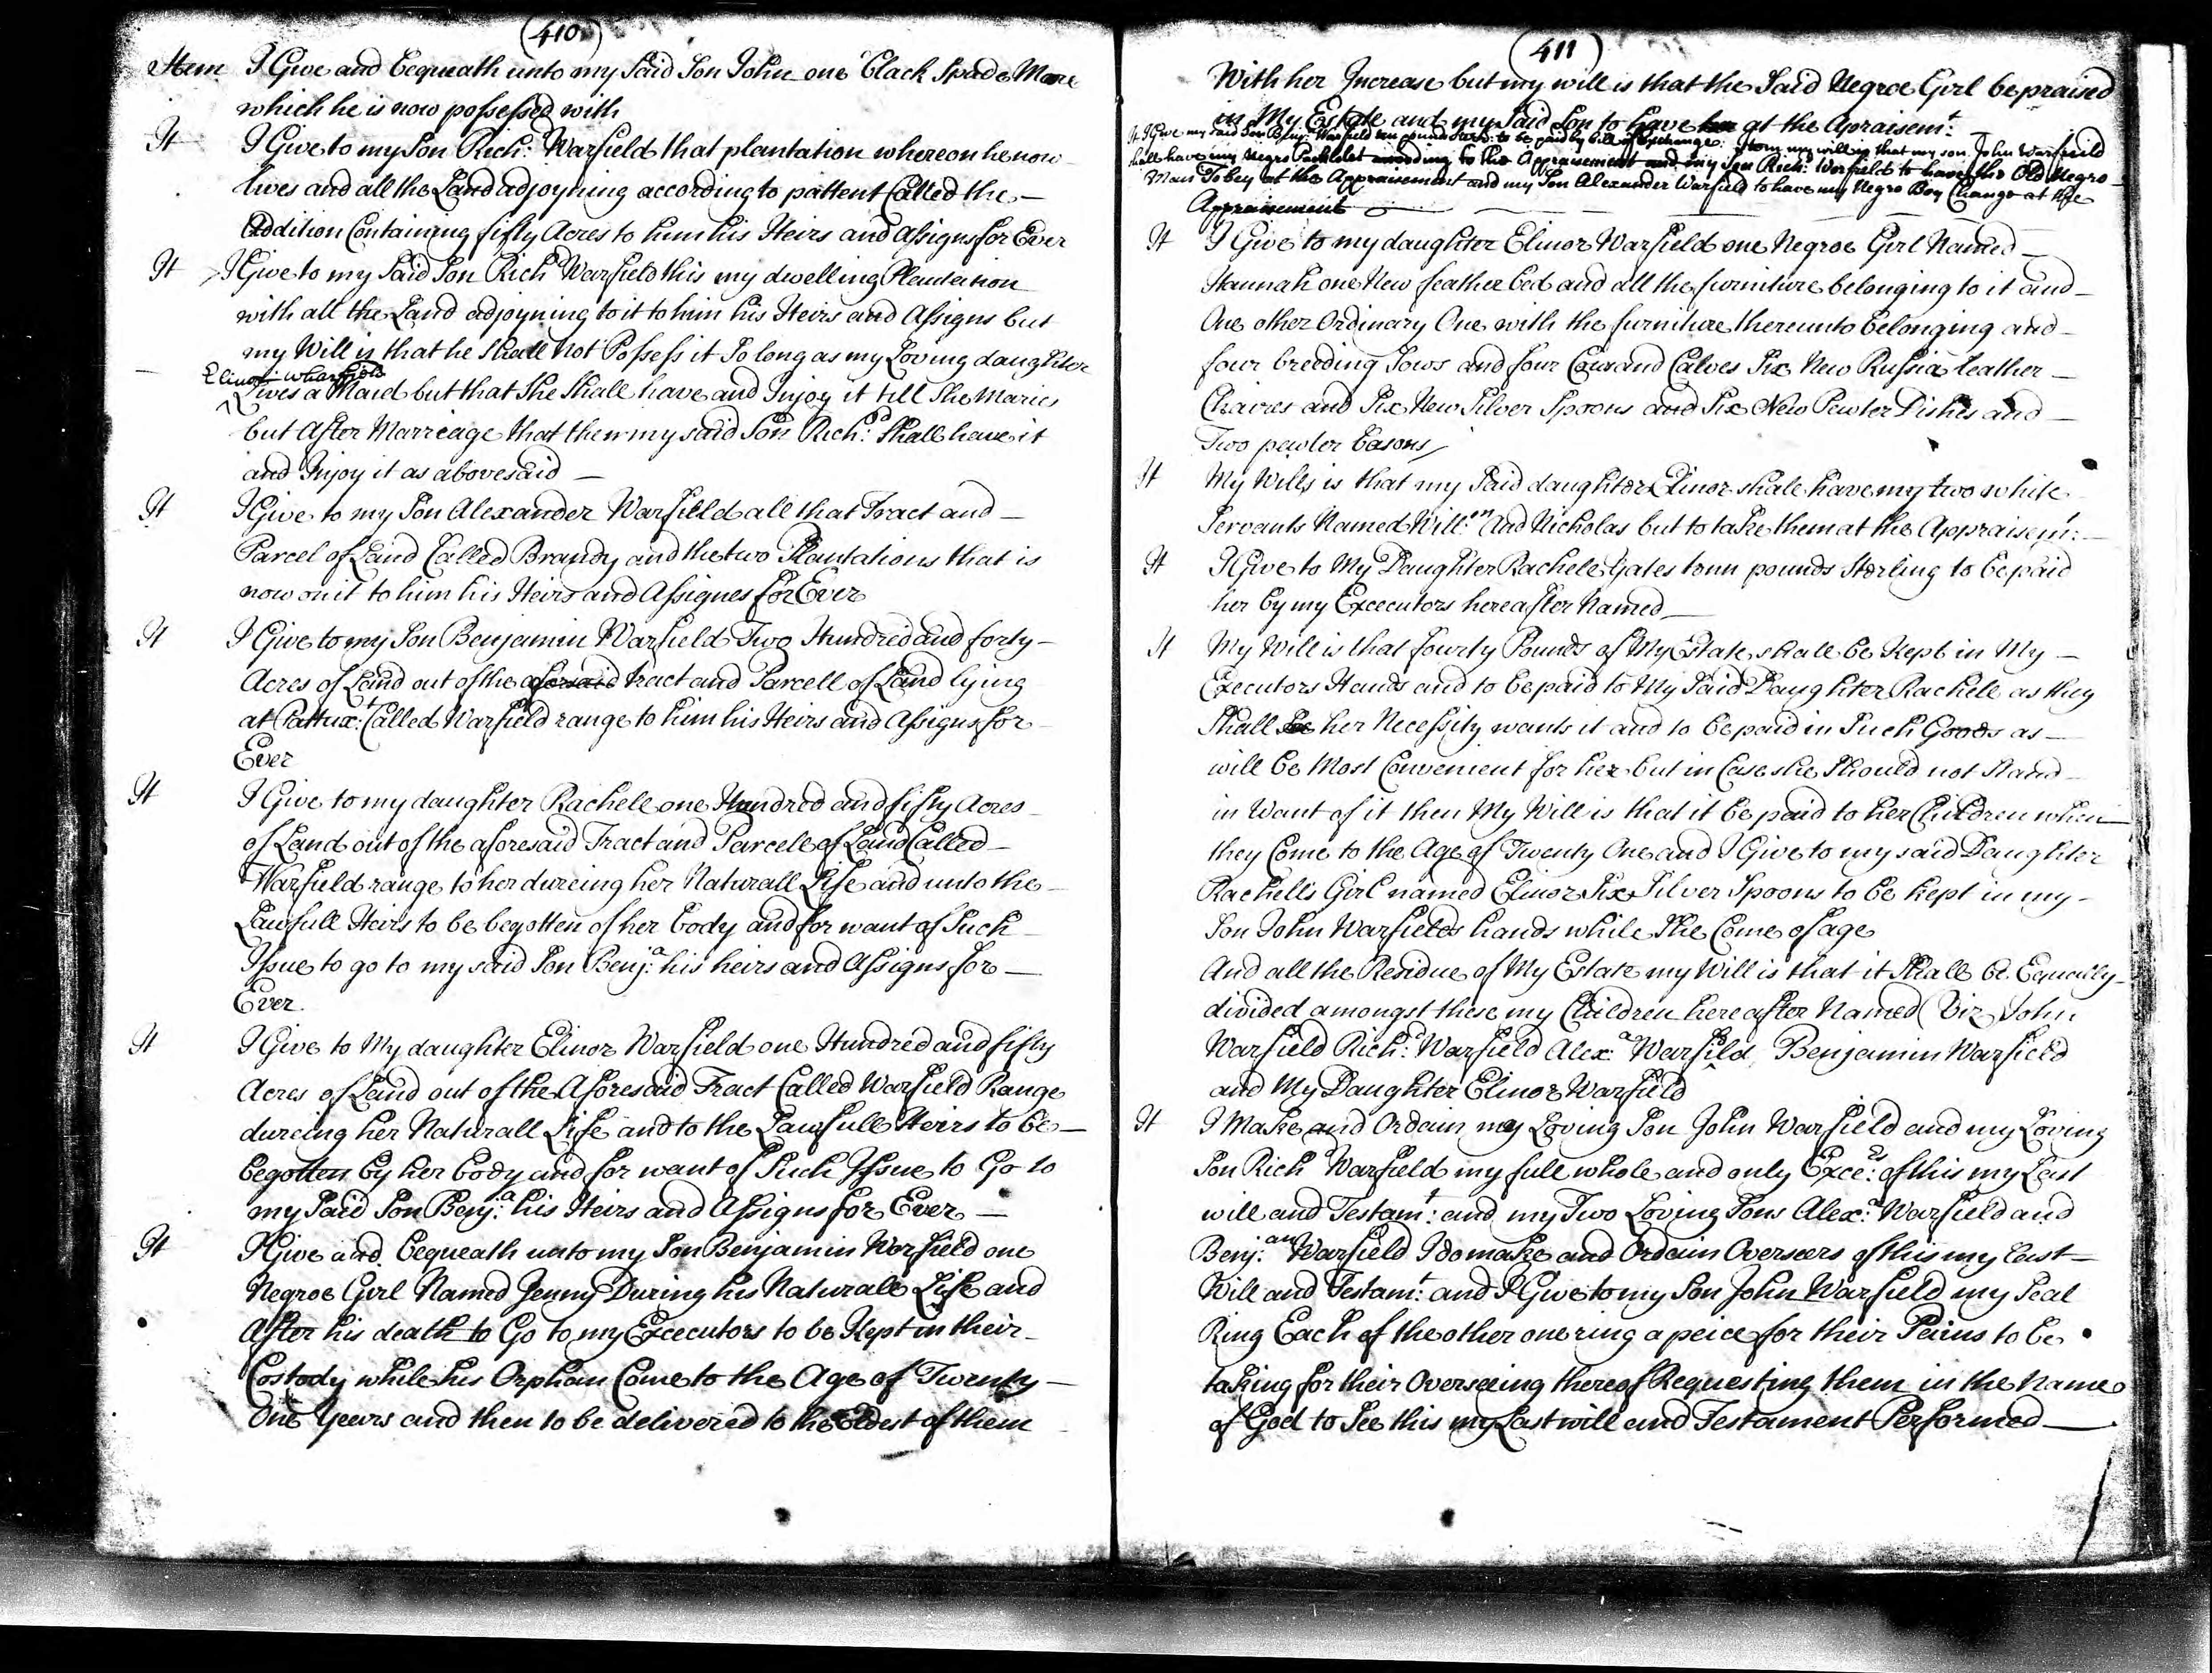 410
Item I Give and bequeath unto my Said Son John one black Spade Mare
which he is now possessed with
It I Give to my Son Rich: Warfield that plantation whereon he now
lives and all the Land adjoyning according to pattent Called the
Addition Containing fifty Acres to him his Heirs and Assigns for Ever
It I Give to my Said Son Rich Warfield this my dwelling Plantation
with all the Land adjoyning to it to him his Heirs and Assigns but
my Will is that he Shall Not Possess it So long as my Loving daughter
Elinor Wharfield
^ Lives a Maid but that She Shall have and Injoy it till She Maries
but After Marreage that then my said Son Rich:d Shall have it
and Injoy it as abovesaid —
It I Give to my Son Alexander Warfield all that Tract and —
Parcel of Land Called Brandy and the two Plantations that is
now on it to him his Heirs and Assignes for Ever
It I Give to my Son Benjamin Warfield Two Hundred and forty —
Acres of Land out of the aforesaid tract and Parcell of Land lying
at Pattux:t Called Warfield range to him his Heirs and Assigns for
Ever
It I Give to my daughter Rachell one Hundred and fifty Acres
of Land out of the aforesaid Tract and Parcele of Land Called —
Warfield range to her dureing her Naturall Life and unto the —
Lawfull Heirs to be begotten of her body and for want of Such
Issue to go to my said Son Benj:a his heirs and Assigns for —
Ever.
It I Give to My daughter Elinor Warfield one Hundred and fifty
Acres of Land out of the Aforesaid Tract Called Warfield Range
dureing her Naturall Life and to the Lawfull Heirs to be —
begotten by her body and for want of Such Issue to Go to
my Said Son Benj:a his Heirs and Assigns for Ever —
It I Give and bequeath unto my Son Benjamin Warfield one
Negroe Girl Named Jenny During his Naturall Life and
After his death to Go to my Excecutors to be Kept in their
Costody while his Orphan Come to the Age of Twenty —
One Years and then to be delivered to the Eldest of them
411
With her Increase but my will is that the Said Negroe Girl be praised
in My Estate and my Said Son to have her at the Apraisem:t —
It I Give my said Son Benj: Warfield ten pounds to be paid by bill of Exchange: Item my will is that my son John Warfield
shall have my Negro according to the Appraisement and my Son Rich:d Warfield to have the Old Negro
Man Tobey at the Appraisement and my Son Alexander Warfield to have my Negro Boy Change at the
Appraisement
It I Give to my daughter Elinor Warfield one Negroe Girl Named —
Hannah one New feather bed and all the furniture belonging to it and —
One other Ordinary One with the furniture thereunto belonging and —
four breeding Sows and four Cows and Calves Six New Russia leather —
Chaires and Six New Silver Spoons and Six New Pewter Dishes and —
Two pewter basons
It My Will is that my Said daughter Elinor shall have my two white
Servants Named Will:m And Nicholas but to take them at the Appraisem:t —
It I Give to My Daughter Rachele Yates tenn pounds Sterling to be paid
her by my Excecutors hereafter Named —
It My Will is that fourty Pounds of My Estate shall be Kept in My —
Executors Hands and to be paid to My Said Daughter Rachele as they
Shall See her Necessity wants it and to be paid in Such Goods as —
will be Most Convenient for her but in Case she Should not Stand —
in Want of it then My Will is that it be paid to her Children when
they Come to the Age of Twenty One and I Give to my said Daughter
Rachells Girl named Elinor Six Silver Spoons to be Kept in my —
Son John Warfields hands while She Come of age
And all the Residue of My Estate my Will is that it Shall be Equally
divided amongst these my Children hereafter Named (Viz) John
Warfield Rich:d Warfield Alex:a Warfild, Benjamin Warfield
and My Daughter Elinor Warfield
It I Make and Ordain my Loving Son John Warfield and my Loving
Son Rich Warfield my full whole and only Exce:rs of this my Last
will and Testam:t and my Two Loving Sons Alex:a Warfield and
Benj:an Warfield I do make and Ordain Overseers of this my Last —
Will and Testam:t and I Give to my Son John Warfield my Seal
Ring Each of the other one ring a peice for their Pains to be
taking for their Overseeing thereof Requesting them in the Name
of God to See this my Last will and Testament Performed —